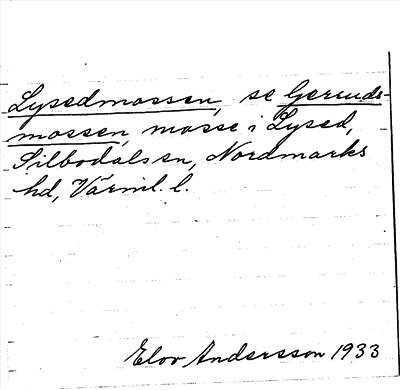 Lysedmossen, se Geruds-
mossen, mosse i Lysed,
Silbodals sn, Nordmarks
hd, Värml. l.
Elov Andersson 1933